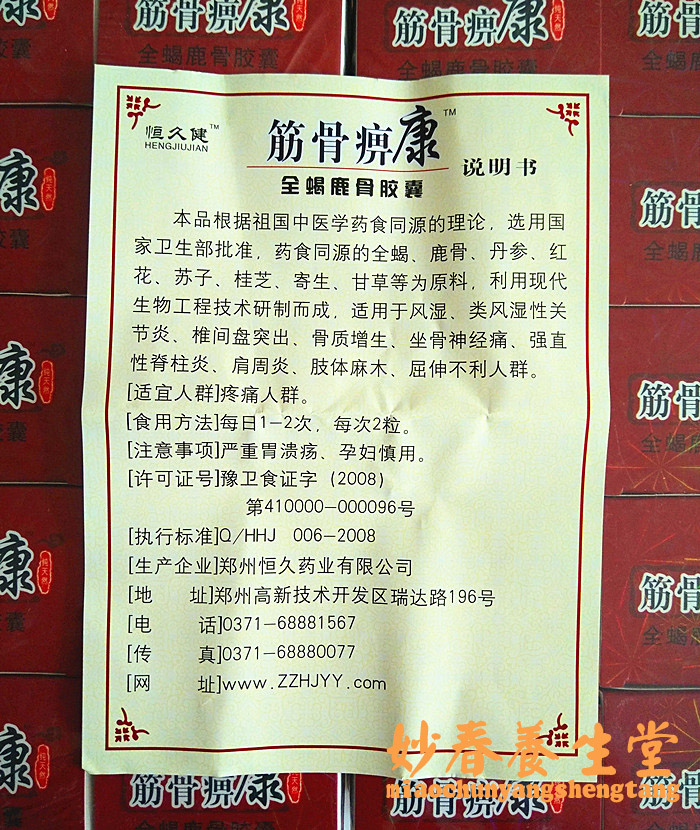 恒久健™
HENGJIUJIAN
筋骨痹康™
说明书
全蝎鹿骨胶囊
本品根据祖国中医学药食同源的理论，选用国
家卫生部批准，药食同源的全蝎、鹿骨、丹参、红
花、苏子、桂芝、寄生、甘草等为原料，利用现代
生物工程技术研制而成，适用于风湿、类风湿性关
节炎、椎间盘突出、骨质增生、坐骨神经痛、强直
性脊柱炎、肩周炎、肢体麻木、屈伸不利人群。
[适宜人群]疼痛人群。
[食用方法]每日1-2次，每次2粒。
[注意事项]严重胃溃疡、孕妇慎用。
[许可证号]豫卫食证字（2008）
第410000-000096号
[执行标准]Q/HHJ 006-2008
[生产企业]郑州恒久药业有限公司
[地 址]郑州高新技术开发区瑞达路196号
[电 话]0371-68881567
[传 真]0371-68880077
[网 址]www.ZZHJYY.com
妙春養生堂
miaochunyangshengtang
筋骨痹康
纯天然
全蝎鹿骨胶囊